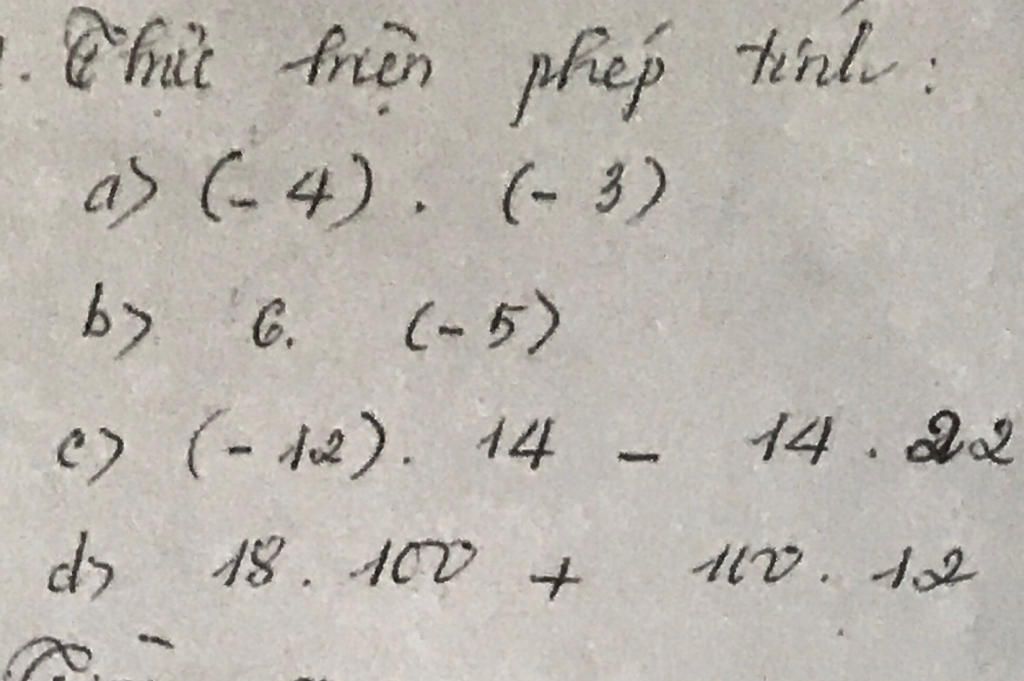 . Thực hiện phép tính:
a) (-4). (-3)
b) 6. (-5)
c) (-12). 14 - 14. 22
d) 18. 100 + 110. 12